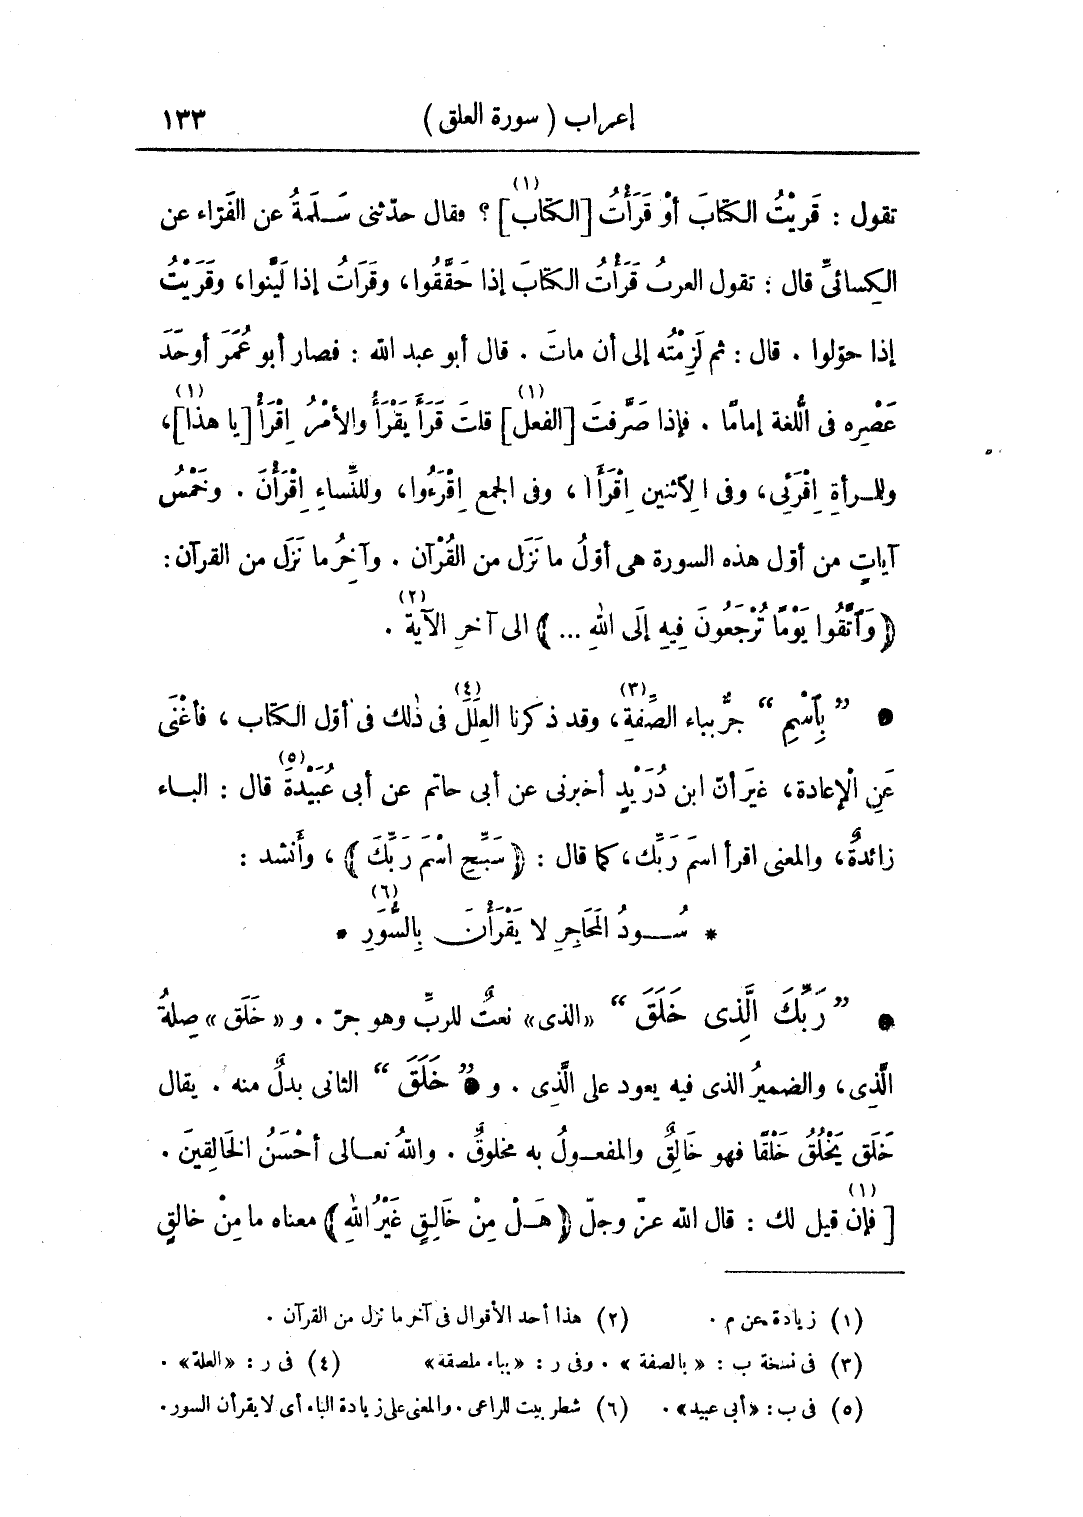 إعراب ( سورة العلق ) ١٣٣
تقول : قَريْتُ الكتابَ أوْ قَرَأْتُ [الكتابَ](١) ؟ فقال حدّثنى سَـلَمَةُ عن الفَرّاء عن
الكِسائىِّ قال : تقول العربُ قَرَأْتُ الكتابَ إذا حَقَّقُوا، وقَرَاتُ إذا لَيَّنوا، وقَرَيْتُ
إذا حوّلوا . قال : ثم لَزِمْتُه إلى أن ماتَ . قال أبو عبد الله : فصار أبو عُمَرَ أوحَدَ
عَصْرِه فى اللُّغة إمامًا . فإذا صَرَّفتَ [الفعل](١) قلتَ قَرَأَ يَقْرَأُ والأمْرُ اِقْرَأْ [يا هذا](١)،
وللـرأةِ اِقْرَئِى، وفى الاِثنين اِقْرَأَا ، وفى الجمع اِقْرَءُوا، وللنِّساءِ اِقْرَأْنَ . وخَمْسُ
آياتٍ من أوّل هذه السورة هى أوّلُ ما نَزَل من القُرْآن . وآخِرُ ما نَزَل من القرآن :
﴿ وَٱتَّقُوا يَوْمًا تُرْجَعُونَ فِيهِ إلَى اللهِ ... ﴾ الى آخرِ الآية(٢) .
● ” بِٱسْمِ “ جرٌّ بباء الصِّفةِ(٣)، وقد ذكرنا العِلَلَ(٤) فى ذٰلك فى أوّل الكتاب ، فأغْنَى
عَنِ الْإعادة، غيَرَ أنّ ابن دُرَيْدٍ أخبرنى عن أبى حاتم عن أبى عُبَيْدةَ(٥) قال : البـاء
زائدةٌ، والمعنى اقرأ اسمَ رَبِّك، كما قال : ﴿ سَبِّحِ اسْمَ رَبِّكَ ﴾ ، وأَنشد :
* سُــودُ المَحَاجِرِ لا يَقْرَأْنَ بِالسُّوَرِ(٦) *
● ” رَبِّكَ الَّذِى خَلَقَ “ «الذى» نعتٌ للربِّ وهو جرّ . و « خَلَق » صِلةُ
الَّذِى، والضميرُ الذى فيه يعود على الَّذِى . و ● ” خَلَقَ “ الثانى بدلٌ منه . يقال
خَلَق يَخْلُقُ خَلْقًا فهو خَالِقٌ والمفعـولُ به مخلوقٌ . واللهُ تعـالى أحْسَنُ الخَالِقِينَ .
[ فإن(١) قيل لك : قال الله عزّ وجلّ ﴿ هَـلْ مِنْ خَالِـقٍ غَيْرُ اللهِ ﴾ معناه ما مِنْ خالقٍ
(١) زيادة عن م . (٢) هذا أحد الأقوال فى آخر ما نزل من القرآن .
(٣) فى نسخة ب : « بالصفة » . وفى ر : « بباء ملصقة » (٤) فى ر : «العلة» .
(٥) فى ب : «أبى عبيد» . (٦) شطر بيت للراعى . والمعنى على زيادة الباء أى لا يقرأن السور .